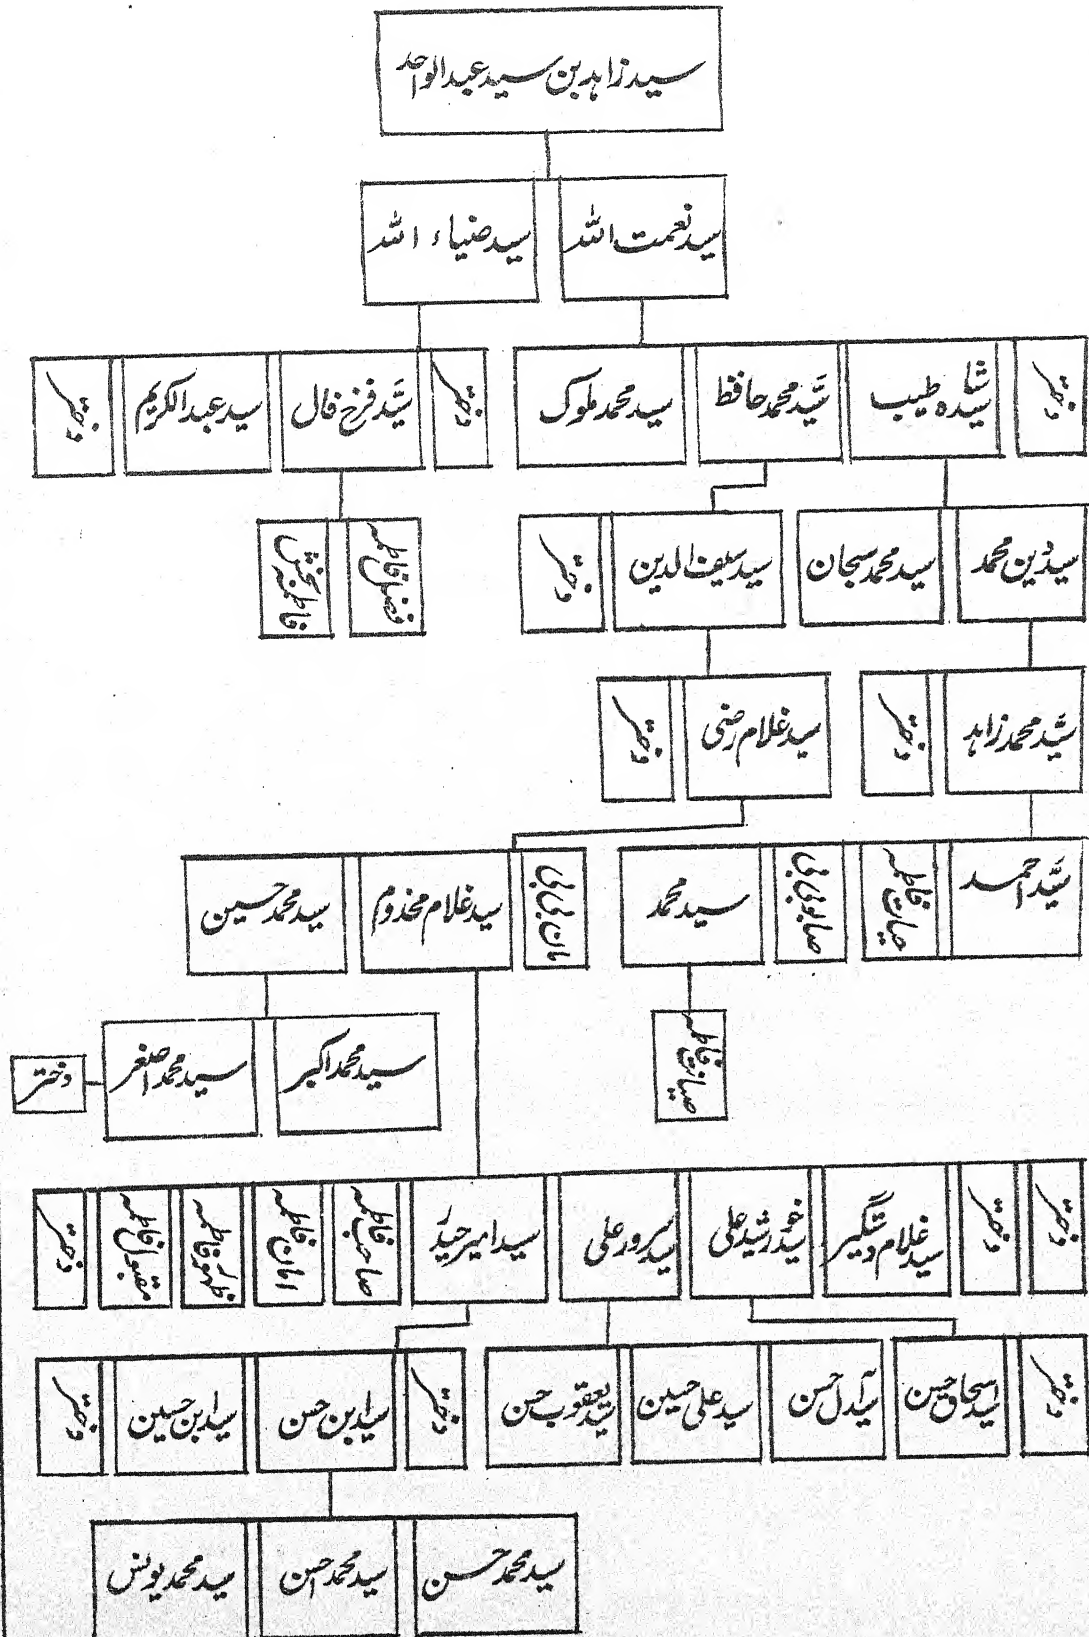 سید زاہد بن سید عبدالواحد
سید نعمت اللہ
سید ضیاء اللہ
دختر
سید شاہ طیب
سید محمد حافظ
سید محمد ملوک
دختر
سید فرخ فال
سید عبدالکریم
دختر
سید دین محمد
سید محمد سبحان
سید سیف الدین
دختر
فضل فاطمہ
فاطمہ بخش
سید محمد زاہد
دختر
سید غلام رضی
دختر
سید احمد
حیات فاطمہ
صابو بی بی
سید محمد
مان بی بی
سید غلام مخدوم
سید محمد حسین
صیانت فاطمہ
سید محمد اکبر
سید محمد اصغر
دختر
دختر
دختر
سید غلام دستگیر
سید خورشید علی
سید سرور علی
سید امیر حیدر
صاحب فاطمہ
امان فاطمہ
ظہور فاطمہ
مقبول فاطمہ
دختر
دختر
سید اسحاق حسین
سید آل حسن
سید علی حسین
سید یعقوب حسن
دختر
سید ابن حسن
سید ابن حسین
دختر
سید محمد حسن
سید محمد احسن
سید محمد یونس